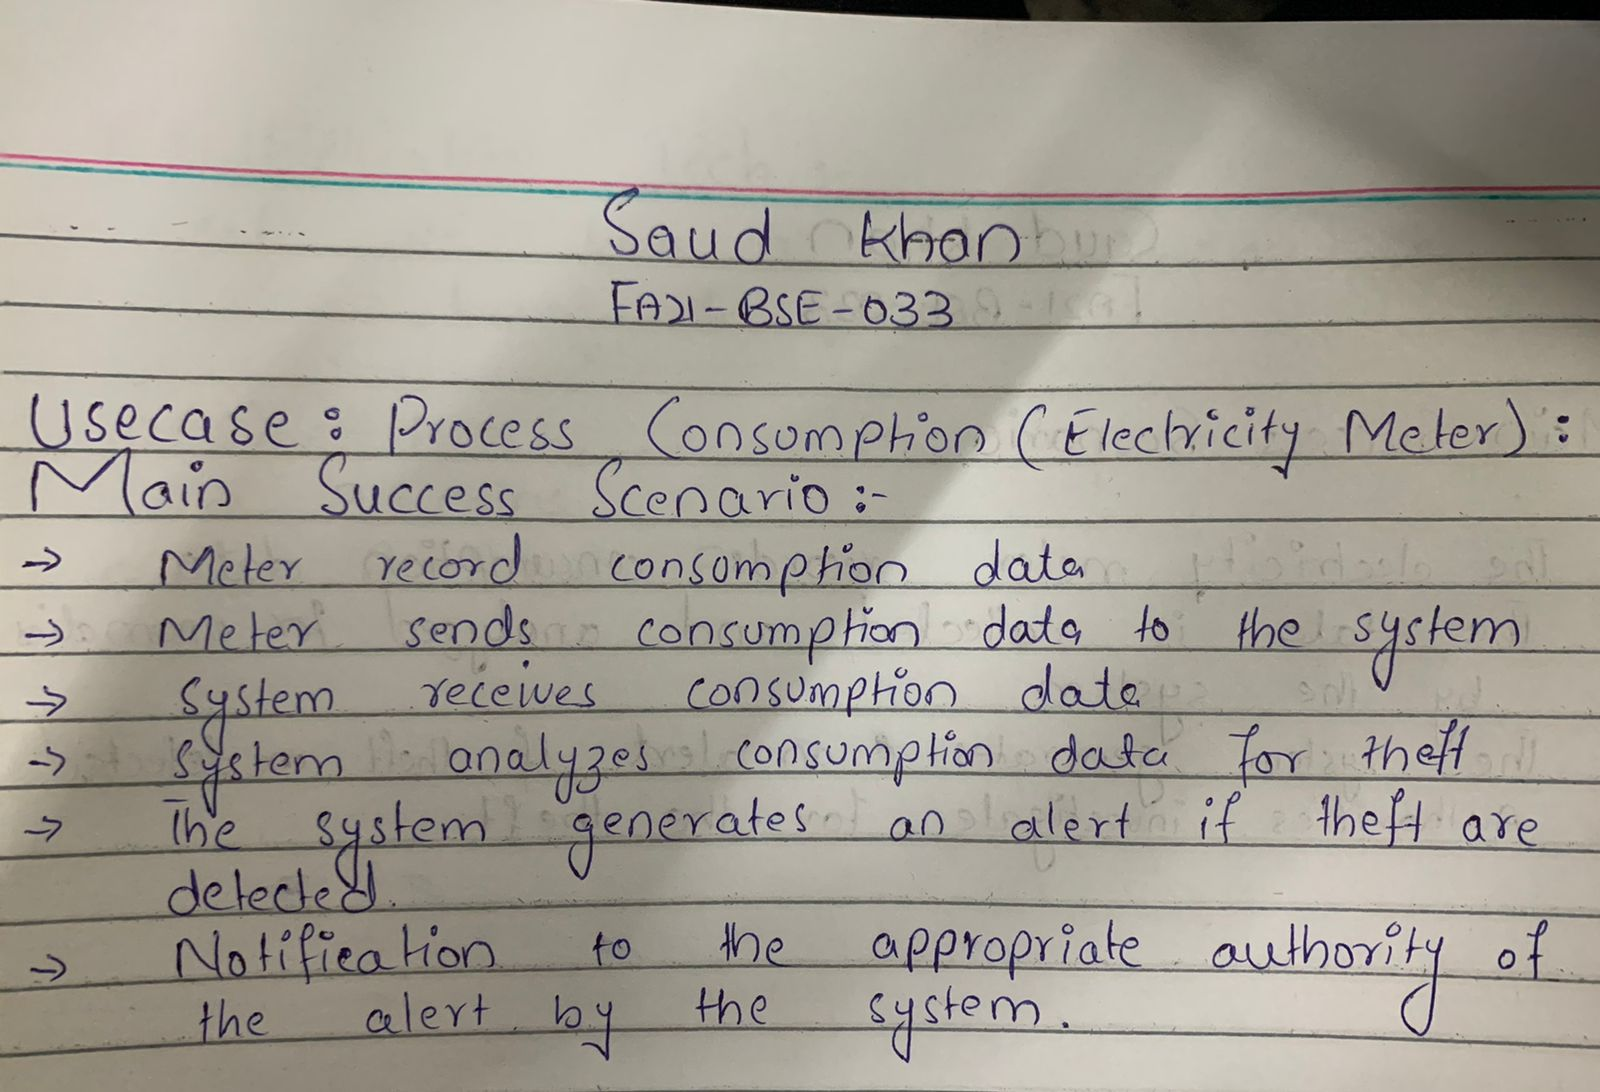 Saud Khan
FA21-BSE-033
Usecase: Process Consumption (Electricity Meter):
Main Success Scenario :-
→ Meter record consomption data
→ Meter sends consumption data to the system
→ system receives consumption data
→ system analyzes consumption data for theft
→ The system generates an alert if theft are
detected.
→ Notification to the appropriate authority of
the alert by the system.